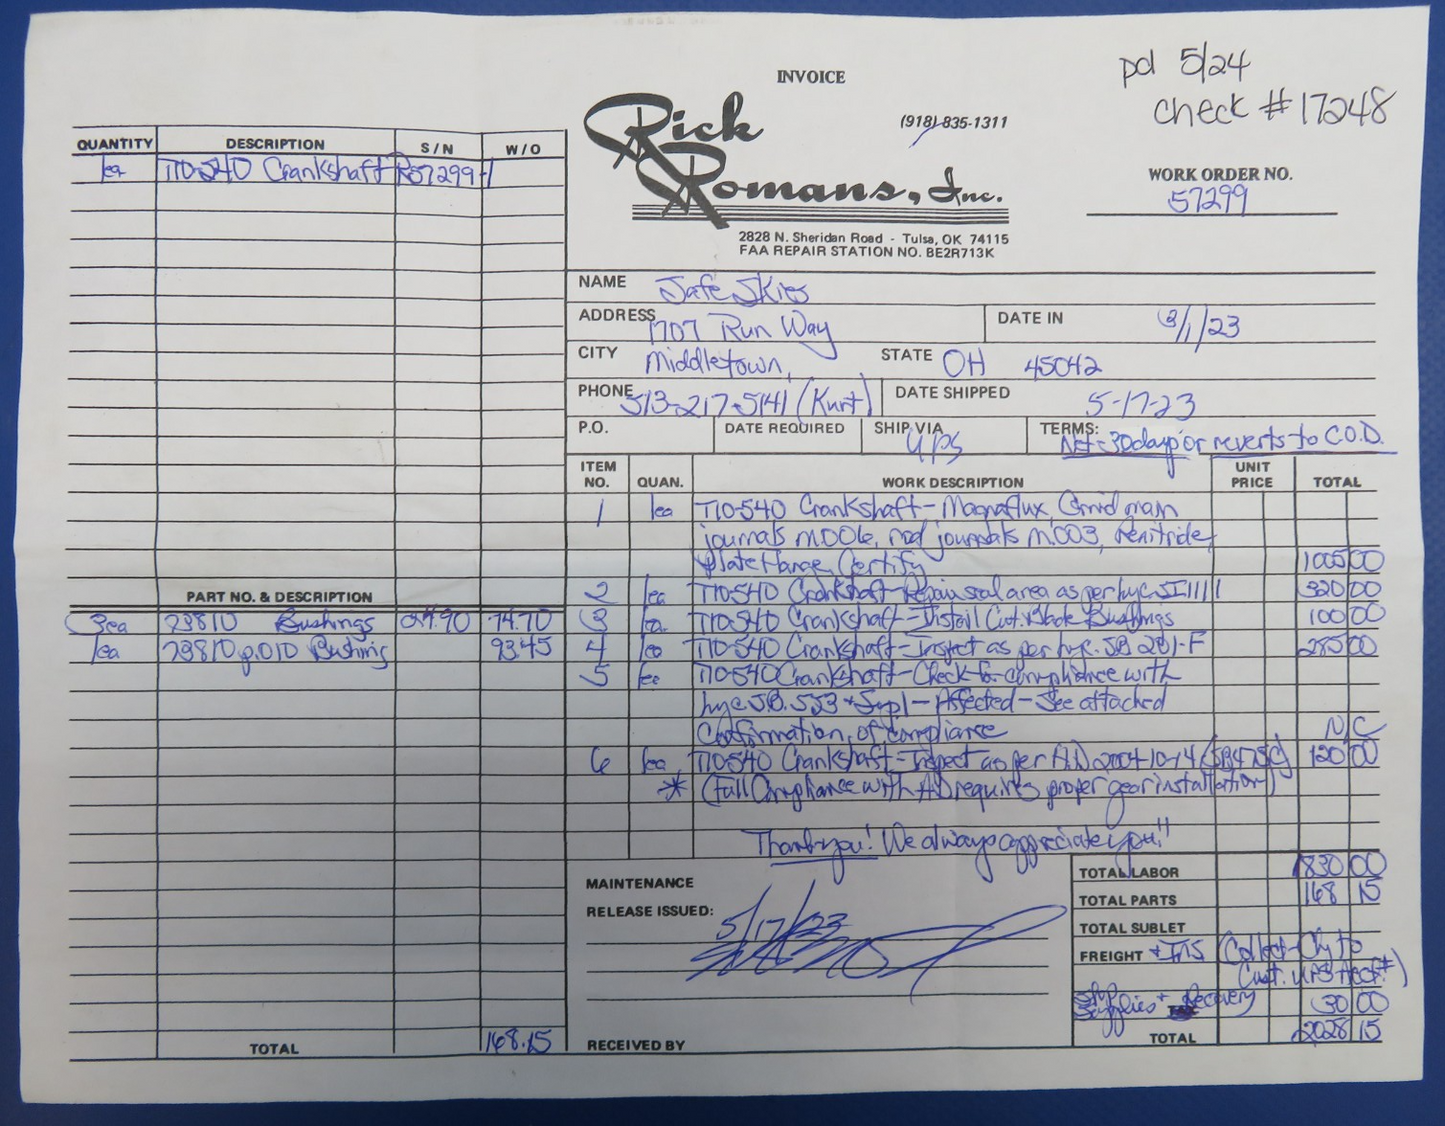 pd 5/24
check #17248
INVOICE
Rick Romans, Inc.
(918) 835-1311
WORK ORDER NO.
57299
2828 N. Sheridan Road - Tulsa, OK 74115
FAA REPAIR STATION NO. BE2R713K
QUANTITY DESCRIPTION S/N W/O
1ea TIO-540 Crankshaft R57299-1
NAME Safe Skies
ADDRESS 1707 Run Way DATE IN 3/1/23
CITY Middletown, STATE OH 45042
PHONE 513-217-5141 (Kurt) DATE SHIPPED 5-17-23
P.O. DATE REQUIRED SHIP VIA UPS TERMS: Net-30days or reverts to C.O.D.
ITEM NO. QUAN. WORK DESCRIPTION UNIT PRICE TOTAL
1 1ea TIO-540 Crankshaft - Magnaflux, Grind main
journals M.006, rod journals M.003, Renitride,
Plate flange, Certify 1005 00
2 1ea TIO-540 Crankshaft - Repair seal area as per Lyc. SI1111 320 00
3 1ea TIO-540 Crankshaft - Install Cut. Blade Bushings 100 00
4 1ea TIO-540 Crankshaft - Inspect as per Lyc. SB 201-F 285 00
5 1ea TIO-540 Crankshaft - Check for compliance with
Lyc S.B. 553 + Supl - Affected - See attached
Confirmation of compliance N/C
6 1ea TIO-540 Crankshaft - Inspect as per A.D. 2004-10-14 (SB475C) 120 00
* (Full Compliance with AD requires proper gear installation)
Thank you! We always appreciate you!!
PART NO. & DESCRIPTION
3ea 23810 Bushings 24.90 74.70
1ea 23810 p.010 Bushing 93.45
TOTAL 168.15
MAINTENANCE
RELEASE ISSUED: 5/17/23
RECEIVED BY
TOTAL LABOR 1830 00
TOTAL PARTS 168 15
TOTAL SUBLET
FREIGHT + INS (Collect-Chg to
Cust. UPS Acct#)
Supplies + Recovery 30 00
TOTAL 2028 15